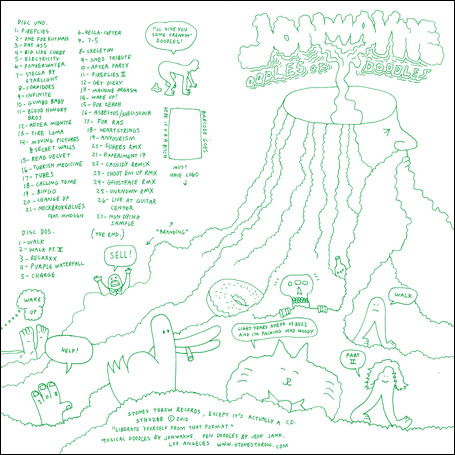 DISC UNO.
1- FIREFLIES
2- AME FOR KUTMAH
3- RAT ASS
4- BIG LIKE CUBBY
5- ELECTRICITY
6- POWERWATER
7- STELLA BY
STARLIGHT
8- CORRIDORS
9- INFINITE
10- GUMBO BABY
11- BLOOD HUNGRY
BROS
12- AFTER MIDNITE
13- TIRE LOMA
14- MOVING PICTURES
& SECRET WALLS
15- READ VELVET
16- TURKISH MEDICINE
17- TUBES
18- CALLING TOME
19- BINGO
20- CHANGE UP
21- NECKBROKEBLUES
FEAT. MNDSGN
DISC DOS.
1- WALK
2- WALK PT. II
3- RELAXXX
4- PURPLE WATERFALL
5- CHARGE
6- BELLA-COPTER
7- 7-5
8- SKELETON
9- SNES TRIBUTE
10- AFTER PARTY
11- FIREFLIES II
12- GET DIZZY
13- MACHINE ORGASM
14- WAKE UP!
15- FOR ZEROH
16- ASBESTOS/
17- FOR RAS
18- HEARTSTRINGS
19- ANYOURISM
20- SUBERS RMX
21- EXPERIMENT 17
22- CASSIDY REMIX
23- SHOOT EM UP RMX
24- GHOSTFACE RMX
25- UNKNOWN RMX
26- LIVE AT GUITAR
CENTER
27- MON DYIND
SAMPLE
(THE END.)
"I'LL GIVE YOU
SOME FREAKIN'
DOODLES!"
BARCODE GOES
HERE
MUST
HAVE LOGO
"BRANDING"
JONWAYNE
OODLES OF DOODLES
SELL!
WAKE
UP
HELP!
LIGHT YEARS AHEAD OF DOZE
AND I'M PACKING MAD WOODY
WALK
PART
II
STONES THROW RECORDS, EXCEPT IT'S ACTUALLY A CD.
STH2288 © 2012
"LIBERATE YOURSELF FROM THAT FORMAT"
MUSICAL DOODLES BY JONWAYNE, PEN DOODLES BY JEFF JANK.
LOS ANGELES WWW.STONESTHROW.COM